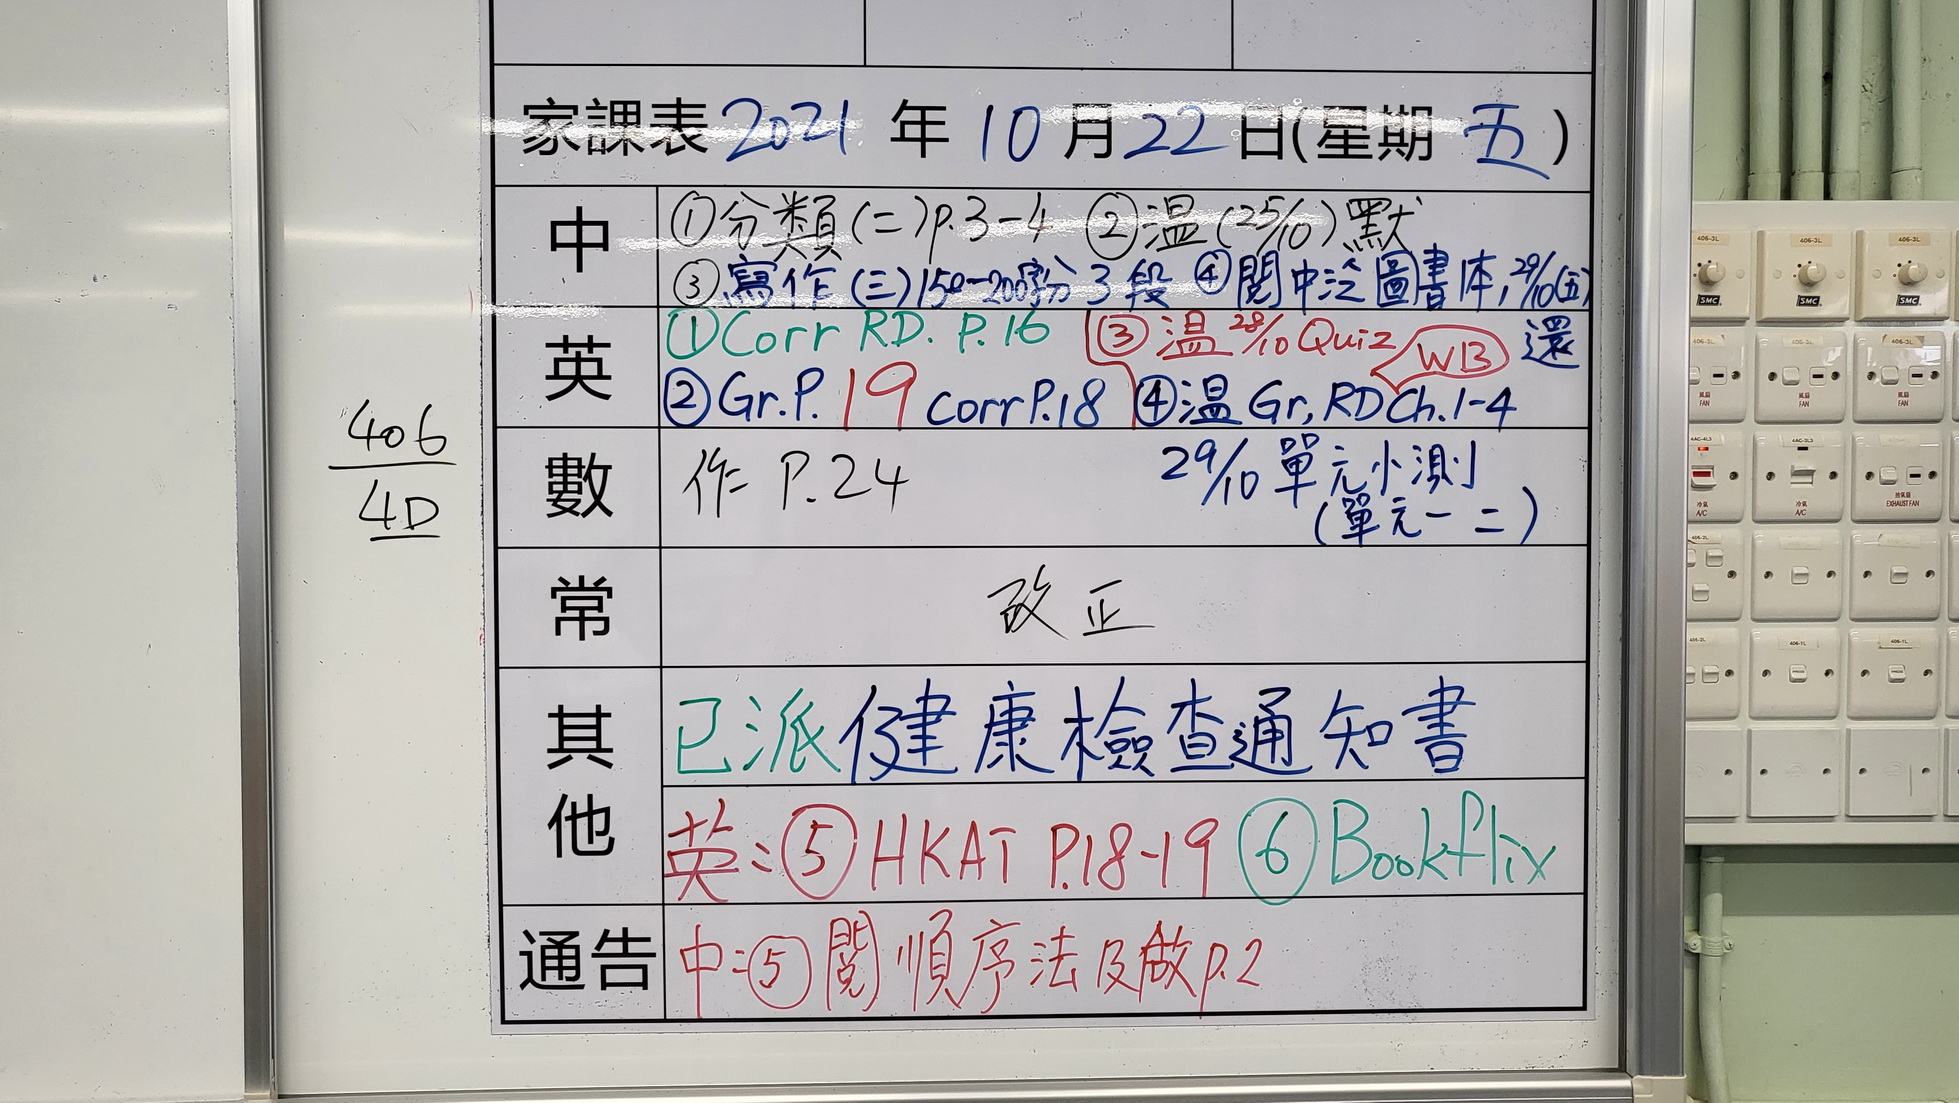 家課表 2021 年 10 月 22 日(星期 五)
中
①分類(二)p.3-4 ②温(25/10)默
③寫作(三)150-200字分3段 ④閱中泛圖書体,29/10(五)
還
英
①Corr RD. P.16 ③温28/10 Quiz WB
②Gr.P.19 corrP.18 ④温Gr,RD Ch.1-4
數
作 P.24 29/10 單元小測
(單元一 二)
常
改正
其他
已派健康檢查通知書
英:⑤HKAT P.18-19 ⑥Bookflix
通告
中:⑤閱順序法及做p.2
406
4D
406-3L
406-3L
406-3L
SMC
SMC
SMC
風扇
FAN
風扇
FAN
風扇
FAN
冷氣
A/C
冷氣
A/C
抽氣扇
EXHAUST FAN